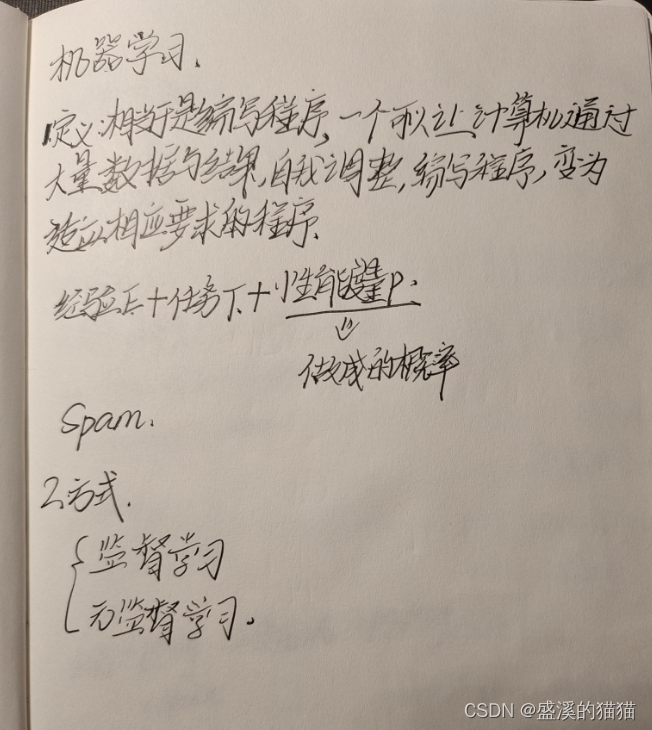 机器学习.
1.定义:相当于是编写程序,一个可以让计算机通过
大量数据与结果,自我调整,编写程序,变为
适应相应要求的程序.
经验E+任务T+性能度量P.
⇓
做成的概率
Spam.
2.方式.
{监督学习
无监督学习.
CSDN @盛溪的猫猫